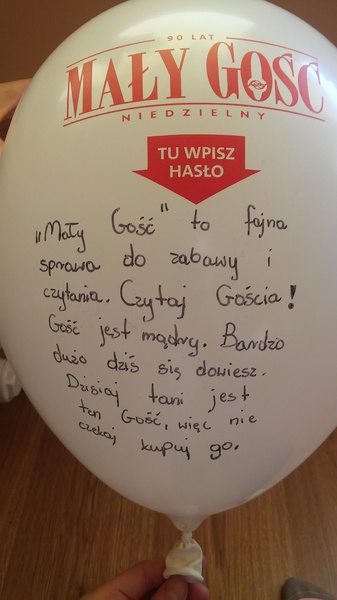 90 LAT
MAŁY GOŚĆ
NIEDZIELNY
TU WPISZ
HASŁO
„Mały Gość" to fajna
sprawa do zabawy i
czytania. Czytaj Gościa!
Gość jest mądry. Bardzo
dużo dziś się dowiesz.
Dzisiaj tani jest
ten Gość, więc nie
czekaj kupuj go.